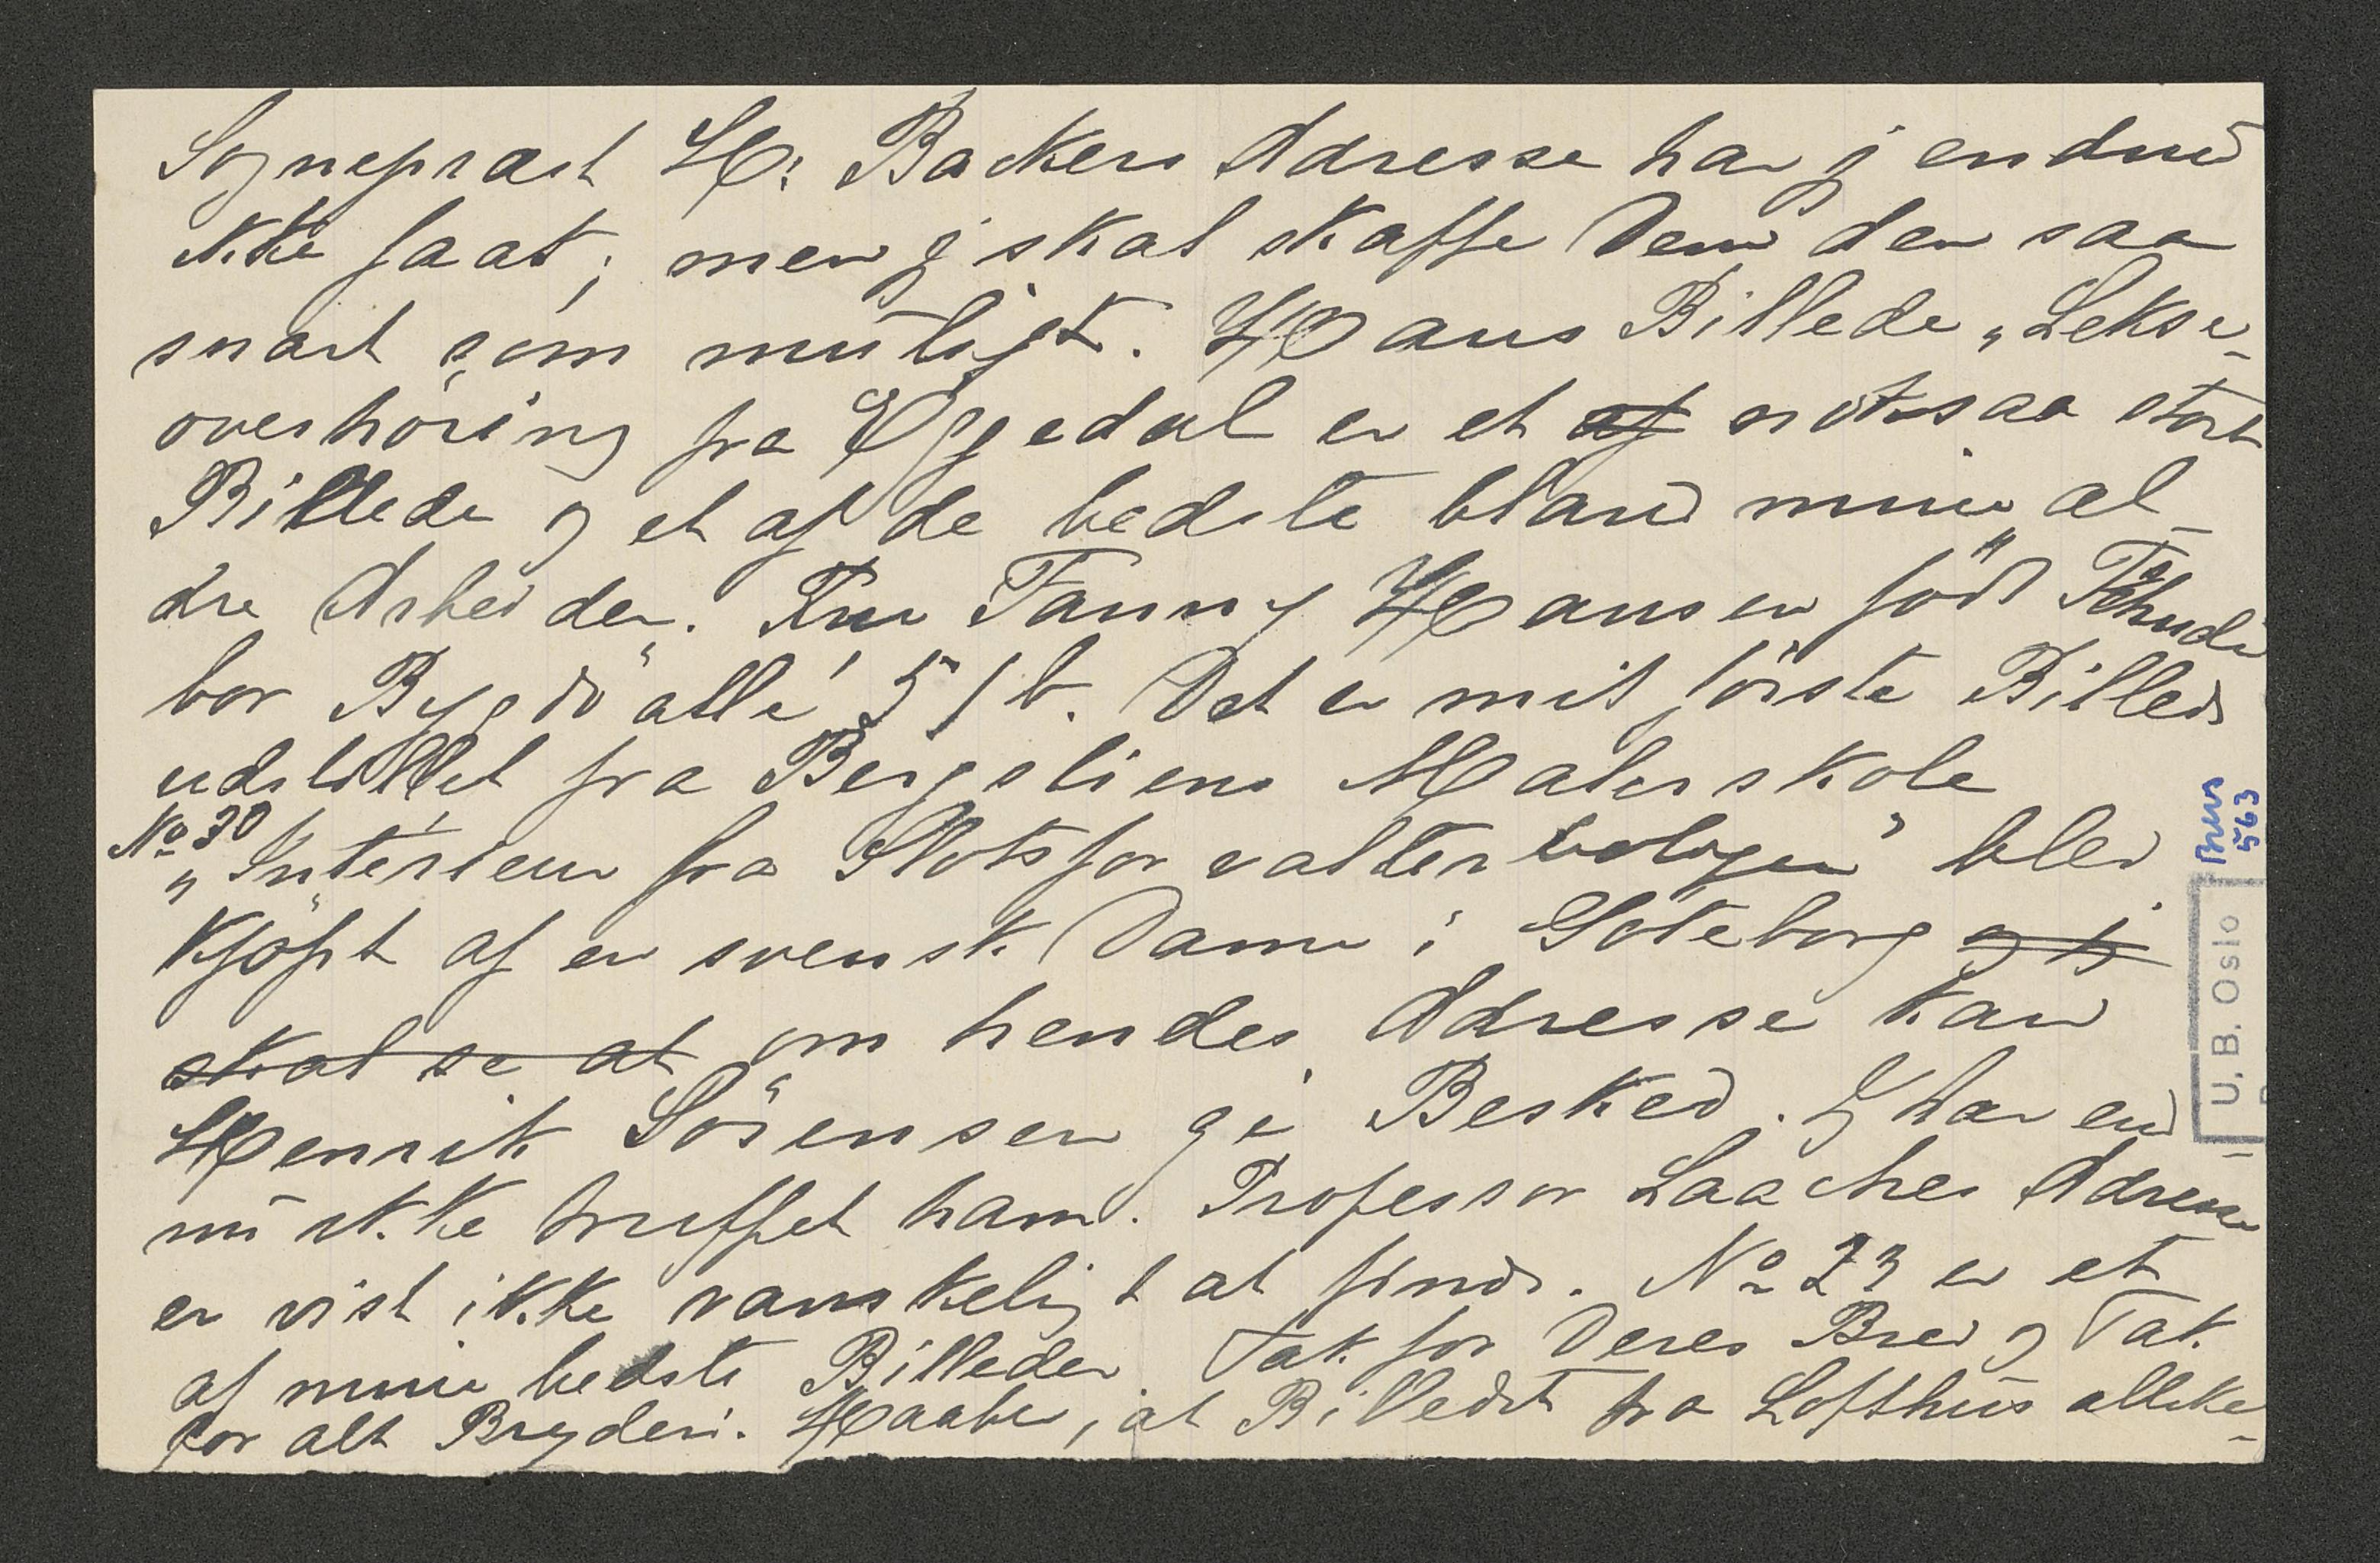 Sognepræst H: Backers Adresse har j endnu
ikke faat; men j skal skaffe Dem den saa
snart som muligt. Hans Billede „Lekse-
overhöring fra Eggedal er et af noksaa stort
Billede og et af de bedste bland mine „æl-
dre Arbeider." Fru Fanny Hansen född Tschudi
bor Bygdö allé 51b. Det er mit förste Billede
udstillet fra Bergsliens Malerskole
No 30
„Interieur fra Slotsforvalterboligen" blev
kjöpt af en svensk Dame i Göteborg og j
skal se at om hendes Adresse kan
Henrik Sörensen gi Besked. J har end-
nu ikke truffet ham. Professor Laaches Adresse
er vist ikke vanskeligt at finde. No 23 er et
af mine bedste Billeder Tak for Deres Brev og Tak
for alt Bryderi. Haaber, at Billedet fra Lofthus allike-
Brevs
563
U. B. Oslo